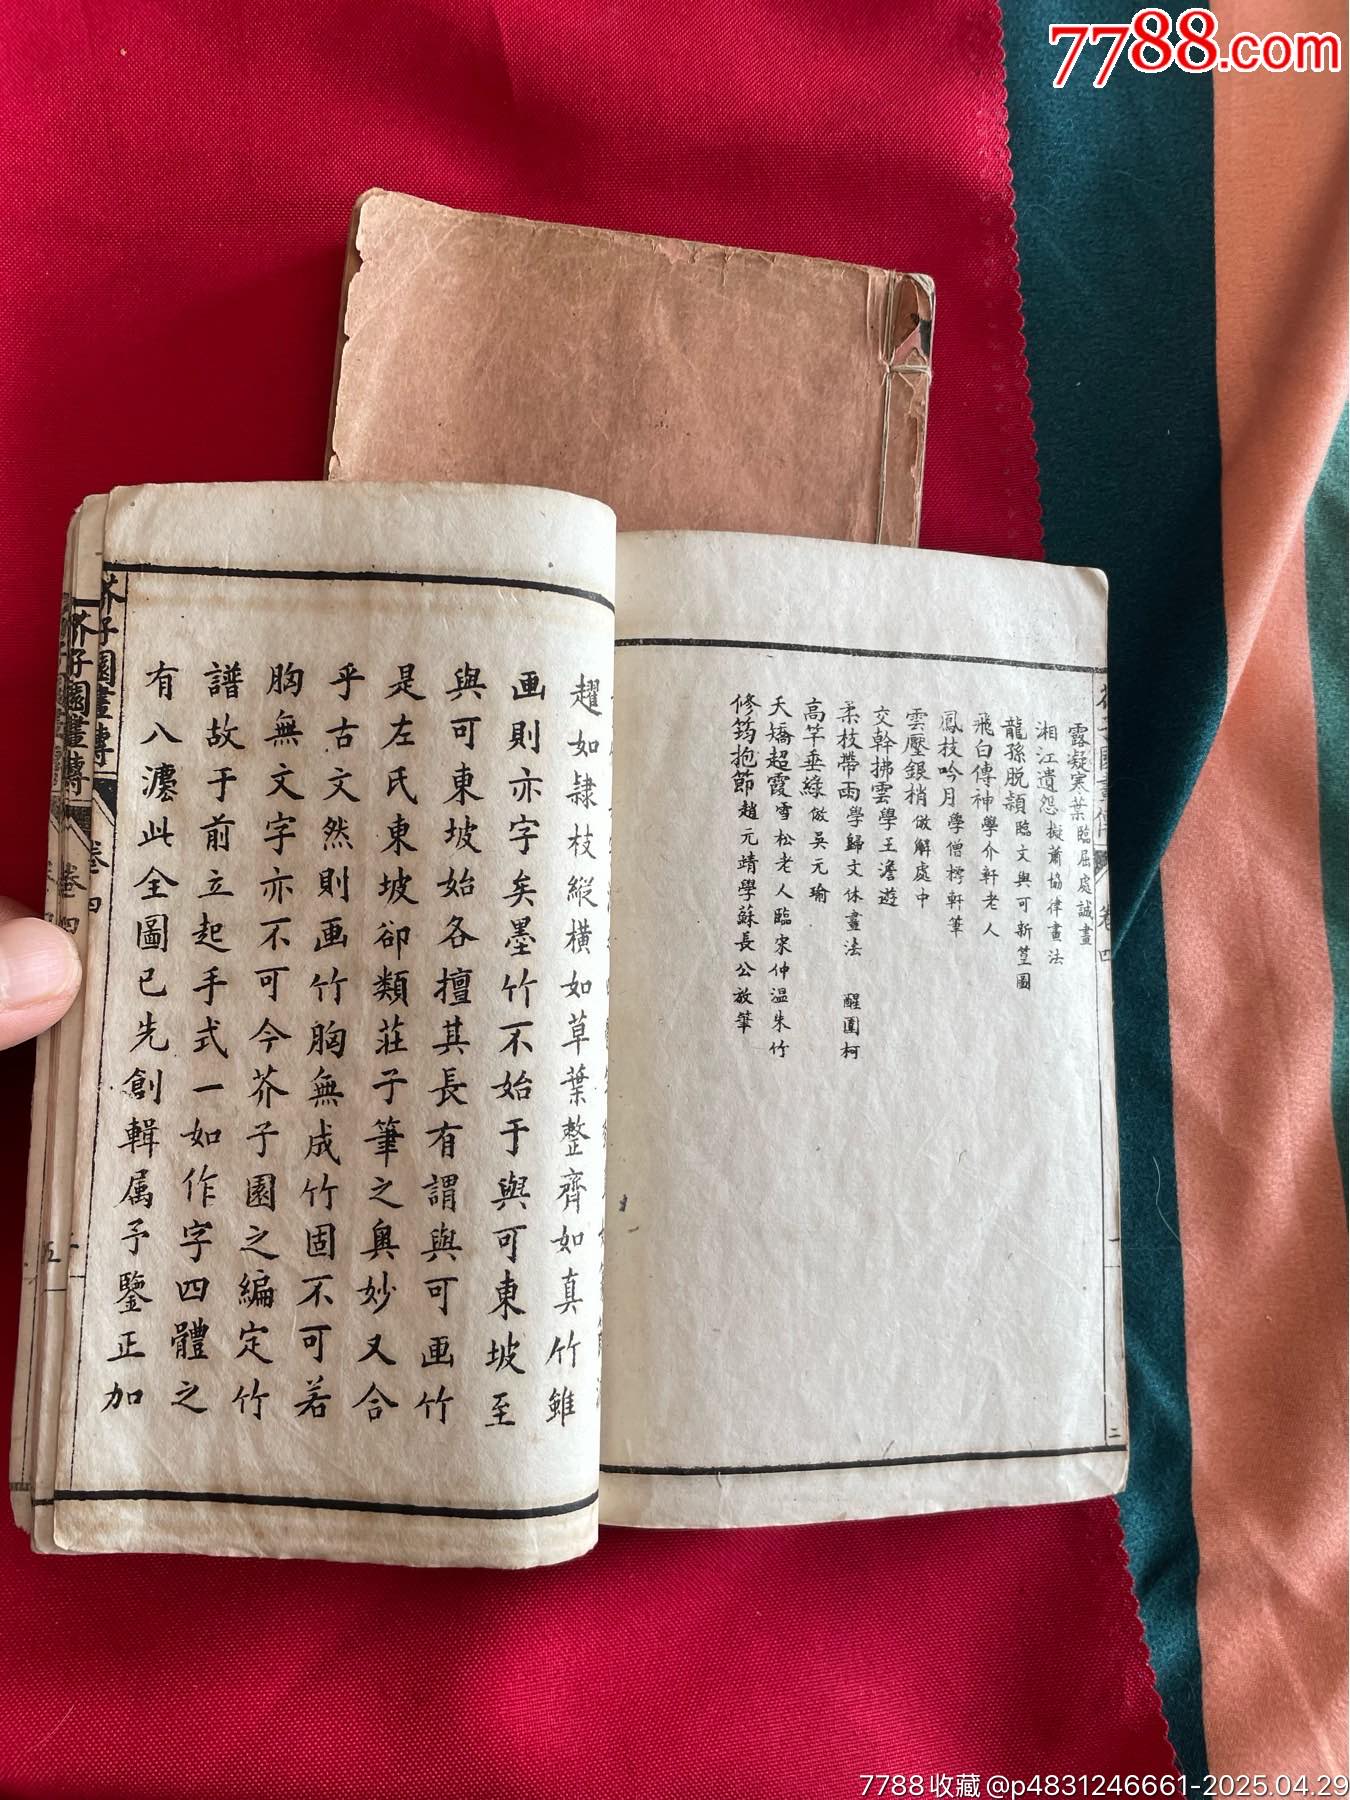 7788.com
芥子園畫傳
卷四
二
露凝寒葉臨屈處誠畫
湘江遺怨擬蕭協律畫法
龍孫脱頴臨文與可新篁圖
飛白傳神學介軒老人
鳳枝吟月學僧樗軒筆
雲壓銀梢倣解處中
交幹拂雲學王澹遊
柔枝帶雨學歸文休畫法 醒園柯
高竿垂綠倣吳元瑜
夭矯超霞雪松老人臨宋仲溫朱竹
修筠抱節趙元靖學蘇長公放筆
趯如隷枝縱橫如草葉整齊如真竹雖
画則亦字矣墨竹不始于與可東坡至
與可東坡始各擅其長有謂與可画竹
是左氏東坡卻類莊子筆之奧妙又合
乎古文然則画竹胸無成竹固不可若
胸無文字亦不可今芥子園之編定竹
譜故于前立起手式一如作字四體之
有八灋此全圖已先創輯属予鑒正加
芥子園畫傳
卷四
芥子園畫傳
卷四
五
7788收藏@p4831246661-2025.04.29